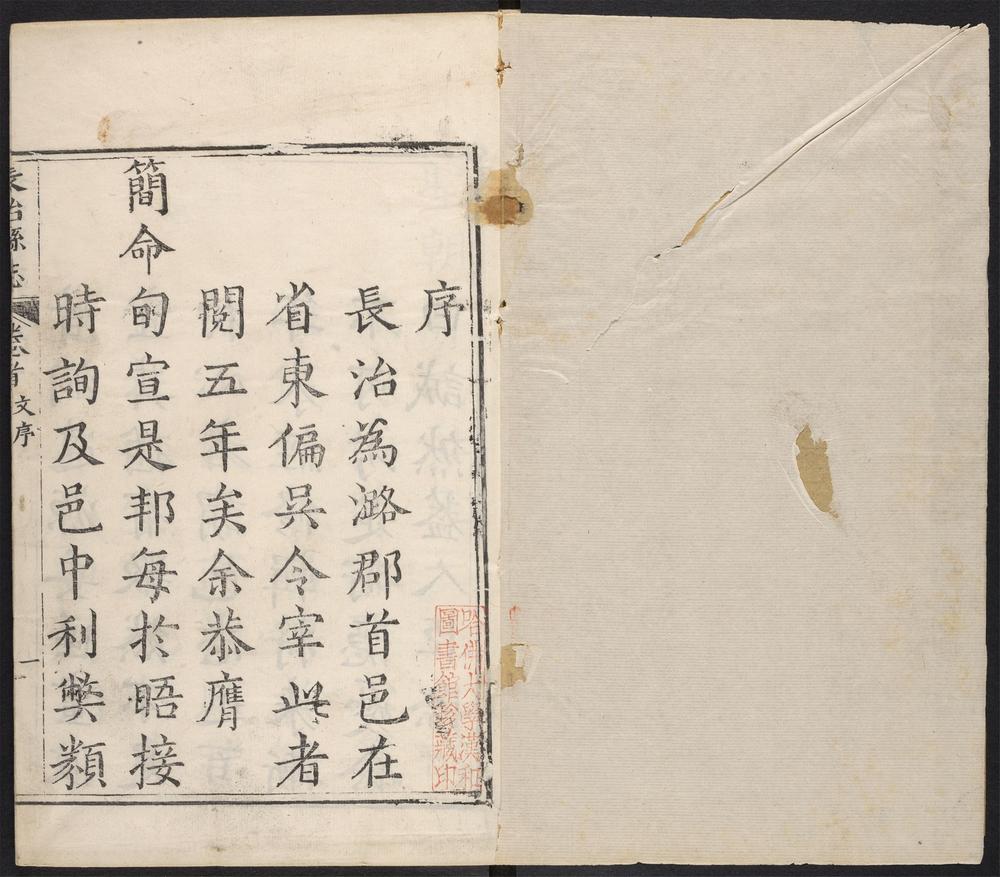 序
長治為潞郡首邑在
省東偏吳令宰此者
閱五年矣余恭膺
簡命旬宣是邦每於晤接
時詢及邑中利獘類
長治縣志 卷首 文序 一
哈佛大學漢和
圖書館珍藏印